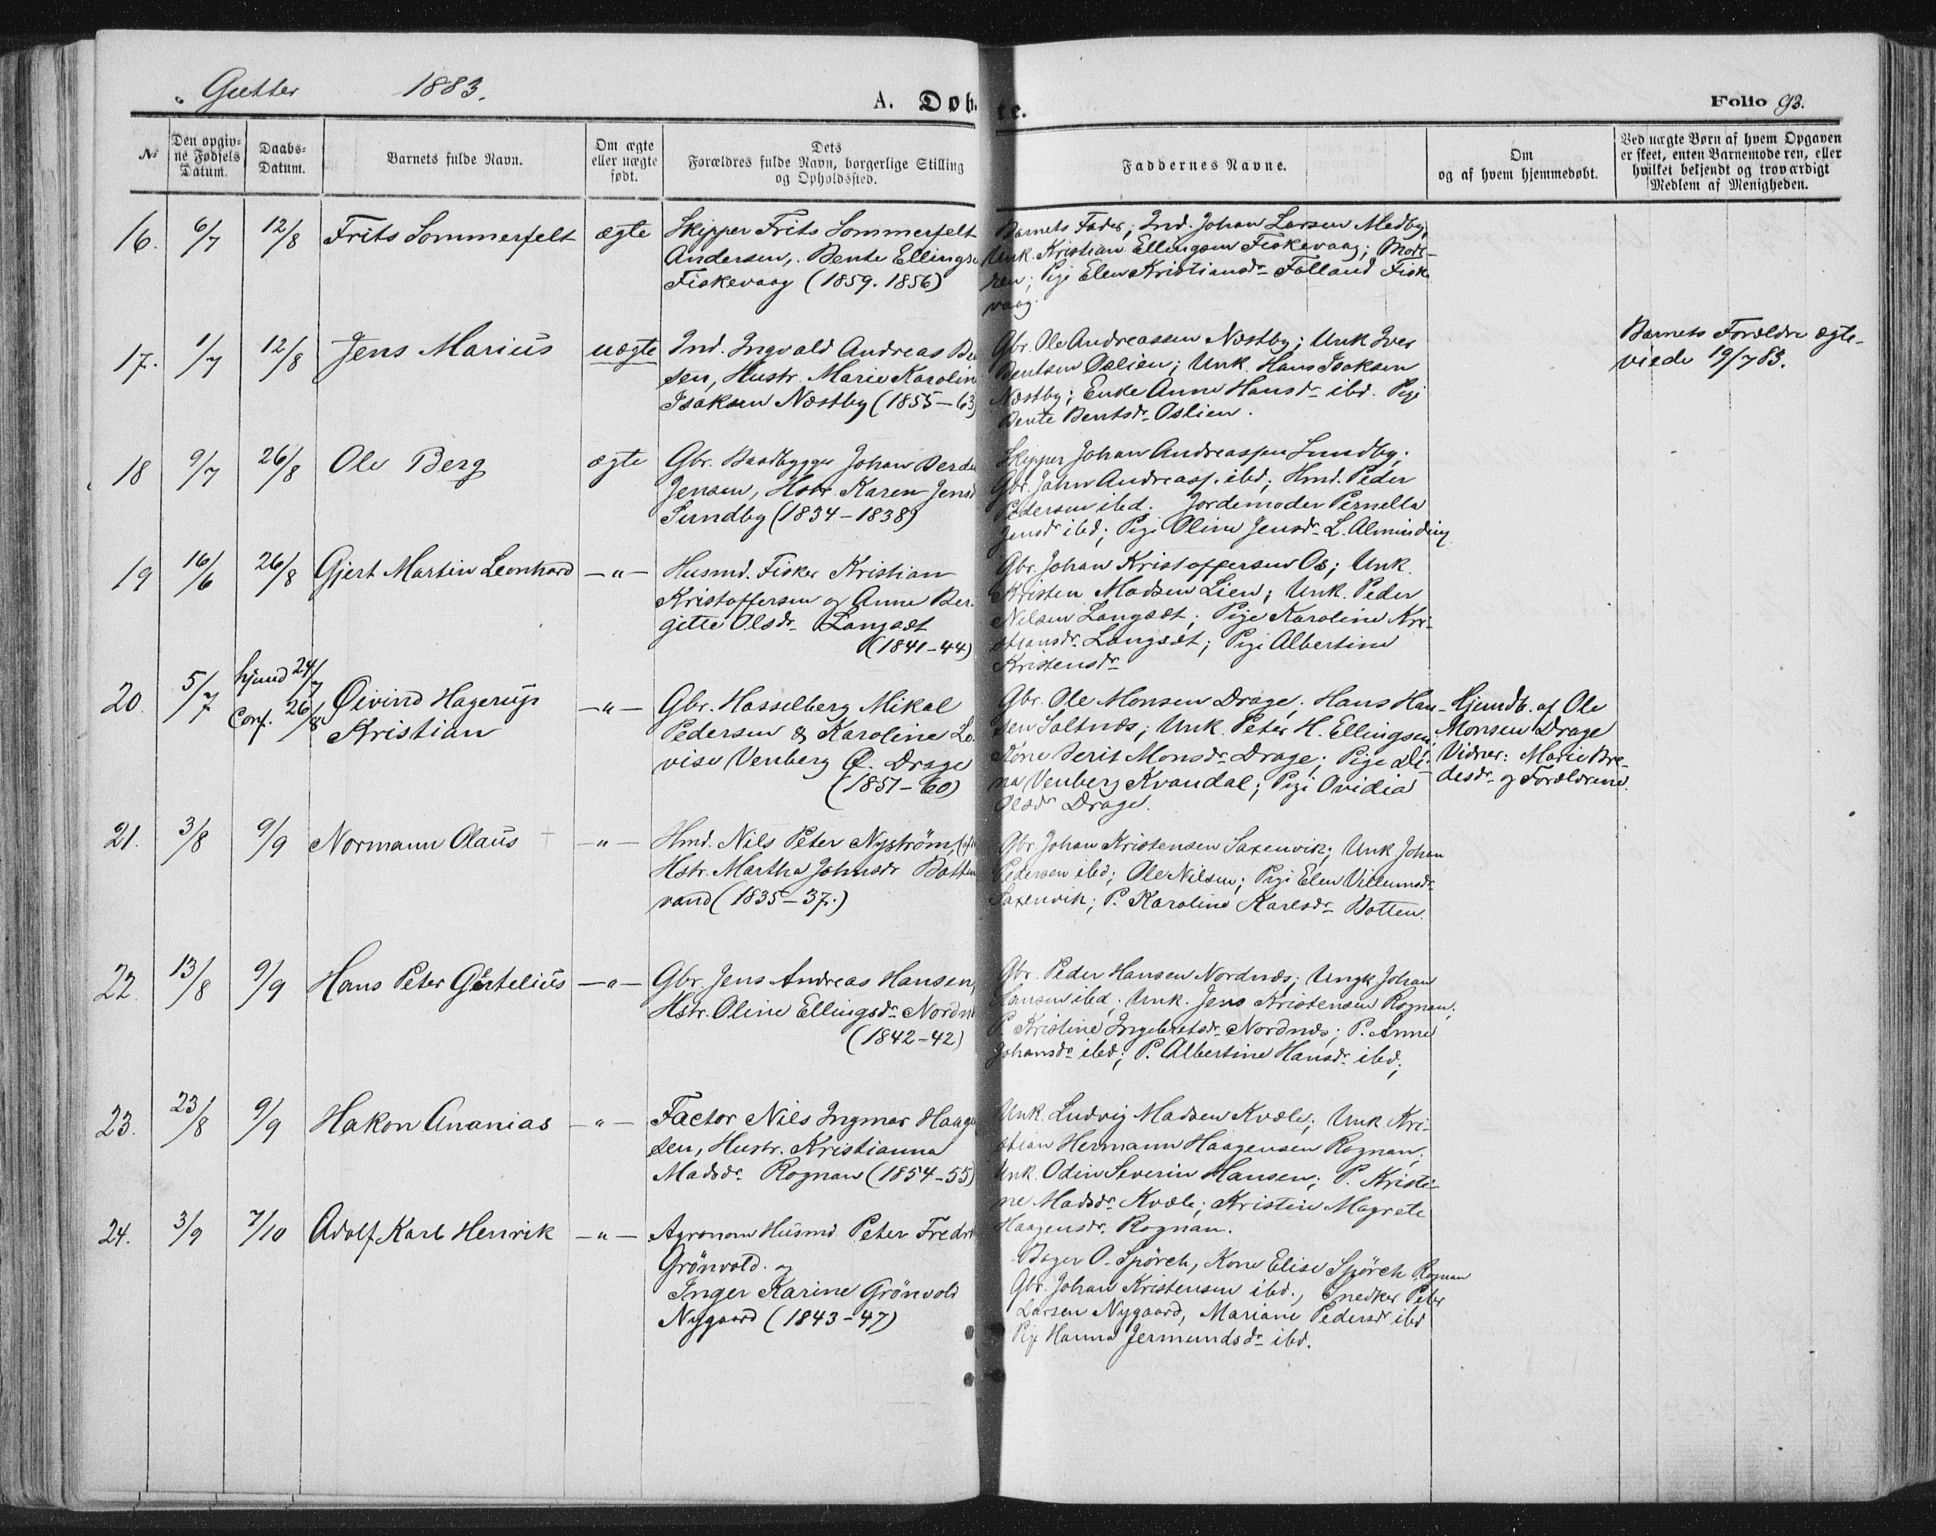 Gutter 1883.
A. Døbte.
Folio 93.
No
Den opgivne Fødsels Datum.
Daabs-Datum.
Barnets fulde Navn.
Om ægte eller uægte født.
Dets Forældres fulde Navn, borgerlige Stilling og Opholdssted.
Faddernes Navne.
Om og af hvem hjemmedøbt.
Ved uægte Børn af hvem Opgaven er skeet, enten Barnemoderen, eller hvilket bekjendt og troværdigt Medlem af Menigheden.
16. 6/7 12/8 Frits Sommerfelt ægte
Skipper Frits Sommerfelt
Andersen, Bente Ellings
Fiskevaag (1859. 1856)
Barnets Fader; Ind. Johan Larsen Medby,
Unk. Kristian Ellingsen Fiskevaag; Mod-
ren; Pige Elen Kristiansdr Falland Fiske
vaag.
17. 1/7 12/8 Jens Marius uægte
Ind. Ingvald Andreas Ben
sen, Hustr. Marie Karolin
Isaksen Næstby (1855-63)
Gbr. Ole Andreassen Næstby; Unk Iver
Bentsen Oslien; Unk. Hans Isaksen
Næstby; Enke Anne Hansdr ibd. Pige
Bente Bentsdr Oslien.
Barnets Forældre ægte-
viede 19/7 83.
18 9/7 26/8 Ole Berg ægte
Gbr. Baadbygger Johan Berdr
Jensen, Hstr. Karen Jensd
Sundby (1834-1838)
Skipper Johan Andreassen Sundby;
Gbr. John Andreass. ibd; Hmd. Peder
Pedersen ibd; Jordemoder Pernella
Jensdr ibd; Pige Oline Jensdr L. Alminding
19 16/6 26/8 Gjert Martin Leonhard -"-
Husmd. Fisker Kristian
Kristoffersen og Anne Ber-
gitte Olsdr Langsæt
(1841-44)
Gbr. Johan Kristoffersen Os; Unk.
Kristen Madsen Lien; Unk. Peder
Nilsen Langsæt; Pige Karoline Kri-
stiansdr Langsæt; Pige Albertine
Kristensdr
20. 5/7 hjmd 24/7 Conf. 26/8 Øivind Hagerup
Kristian -"-
Gbr. Hasselberg Mikal
Pedersen & Karoline Lo
vise Venberg Ø. Drage
(1851-60)
Gbr. Ole Monsen Drage; Hans Han-
sen Saltnæs; Unk. Peter H. Ellingsen;
Kone Berit Monsdr Drage; Pige Di-
na Venberg Kvandal; Pige Ovidia
Olsdr Drage.
Hjemdb. af Ole
Monsen Drage
Vidner: Marie Bre-
desdr og Forældrene.
21. 3/8 9/9 Normann Olaus -"-
Hmd. Nils Peter Nyström,
Hstr. Martha Johnsdr Botten
vand (1835-37.)
Gbr. Johan Kristensen Saxenvik; Unk Johan
Pedersen ibd; Ole Nilsen; Pige Elen Villumsdr
Saxenvik; P. Karoline Karlsdr Botten.
22. 13/8 9/9 Hans Peter Gørtelius -"-
Gbr. Jens Andreas Hansen,
Hstr. Oline Ellingsdr Nordn
(1842-42)
Gbr. Peder Hansen Nordnæs; Ungk Johan
Hansen ibd; Unk. Jens Kristensen Rognan;
P. Kristine Ingebretsdr Nordnæs; P. Anne
Johansdr ibd; P. Albertine Hansdr ibd;
23. 23/8 9/9 Hakon Ananias -"-
Factor Nils Ingmar Haage
sen, Hustr. Kristianna
Madsdr Rognan (1854-55)
Unk. Ludvig Madsen Kvæle; Unk Kri-
stian Hermann Haagensen Rognan;
Unk. Odin Severin Hansen; P. Kristi-
ne Madsdr Kvæle; Kristin Magrete
Haagensdr Rognan.
24. 3/9 7/10 Adolf Karl Henrik -"-
Agronom Husmd Peter Fredri
Grönvold og
Inger Karine Grönvold
Nygaard (1843-47)
Bager O. Spörch, Kone Elise Spörch Rognan
Gbr. Johan Kristensen ibd., Snedker Peter
Larsen Nygaard, Mariane Pedersdr ibd
Pige Hanna Jermundsdr ibd.